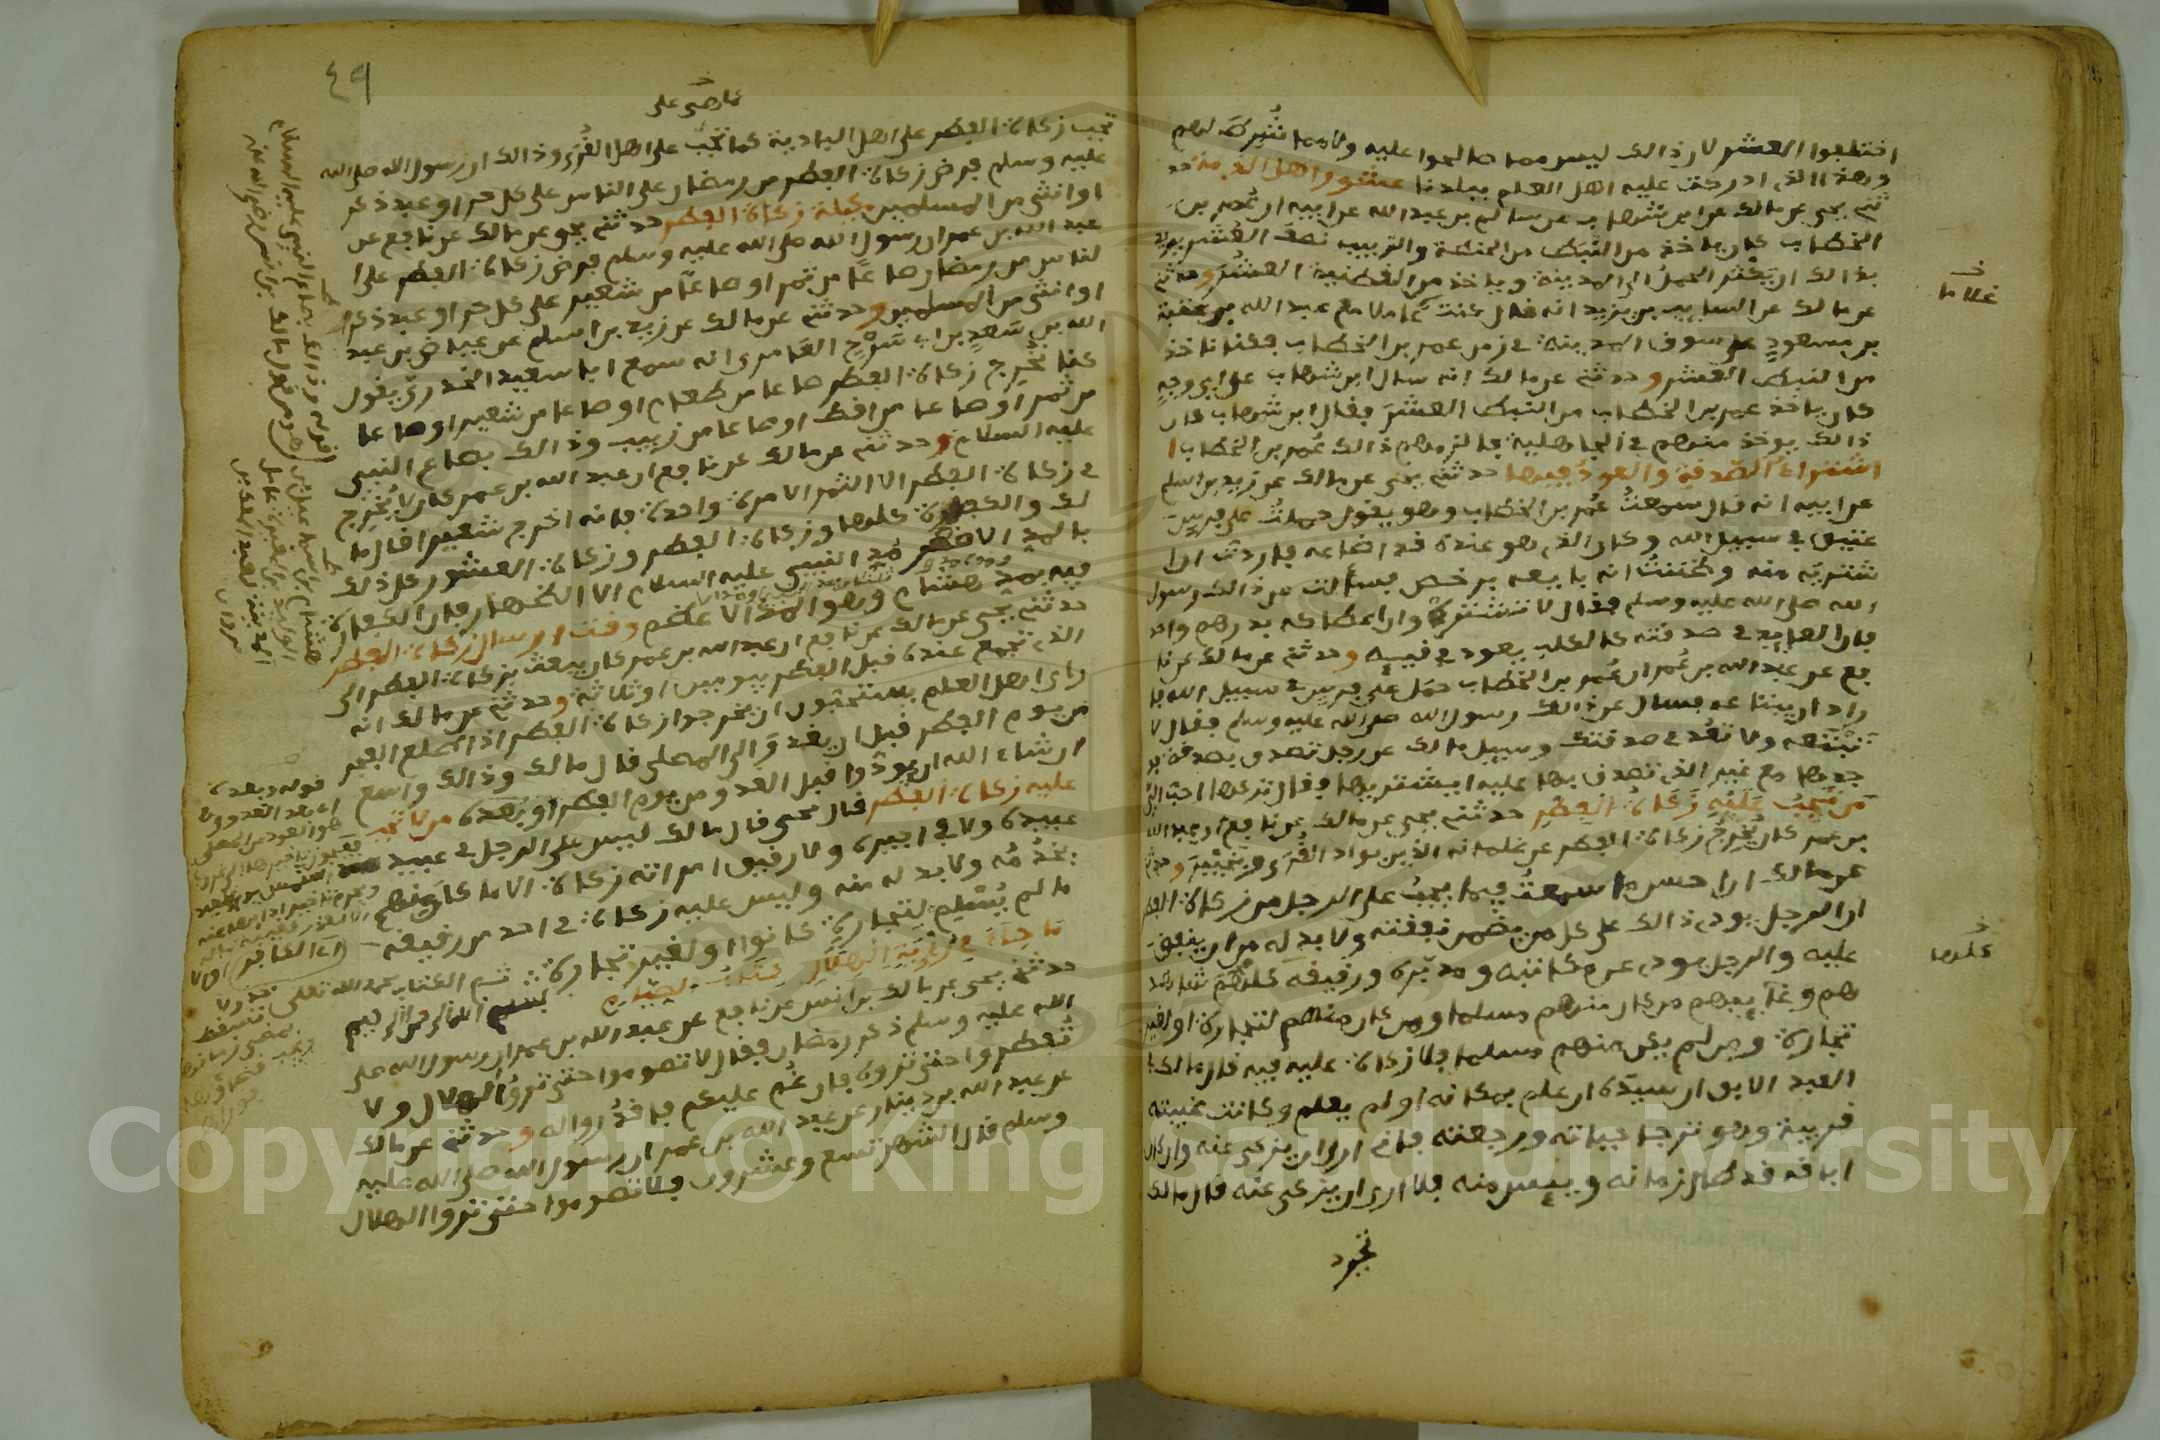 اختلفوا العشر لان ذالك ليس مما صالحوا عليه ولا مما شرط لهم
وهذا الذى ادركت عليه اهل العلم ببلدنا عشور اهل الذمة حد
ثنى يحى عن مالك عن ابن شهاب عن سالم بن عبد الله عن ابيه ان عمر بن
الخطاب كان ياخذ من النبط من الحنطة والزبيب نصف العشر يريد
بذالك ان يكثر الحمل الى المدينة وياخذ من القطنية العشر وحدثنى
عن مالك عن السايب بن يزيد انه قال كنت عاملا مع عبد الله بن عتبة
بن مسعود على سوق المدينة فى زمن عمر بن الخطاب فكنا ناخذ
من النبط العشر وحدثنى عن مالك انه سال ابن شهاب على اى وجه
كان ياخذ عمر بن الخطاب من النبط العشر فقال ابن شهاب كان
ذالك يوخذ منهم فى الجاهلية فالزمهم ذالك عمر بن الخطاب
اشتراء الصدقة والعود فيها حدثنى يحى عن مالك عن زيد بن اسلم
عن ابيه انه قال سمعت عمر بن الخطاب وهو يقول حملت على فرس
عتيق فى سبيل الله وكان الذى هو عنده قد اضاعه فاردت ان ا
شتريه منه وظننت انه بايعه برخص فسالت عن ذالك رسول
الله صلى الله عليه وسلم فقال لا تشتره وان اعطاكه بدرهم واحد
فان العايد فى صدقته كالكلب يعود فى قييه وحدثنى عن مالك عن نا
فع عن عبد الله بن عمر ان عمر بن الخطاب حمل على فرس فى سبيل الله فا
راد ان يبتاعه فسال عن ذالك رسول الله صلى الله عليه وسلم فقال لا
تبتعه ولا تعد فى صدقتك وسيل مالك عن رجل تصدق بصدقة فو
جدها مع غير الذى تصدق بها عليه ايشتريها فقال تركها احب الى
من تجب عليه زكاة الفطر حدثنى يحى عن مالك عن نافع ان عبد الله
بن عمر كان يخرج زكاة الفطر عن غلمانه الذين بواد القرى وبخيبر وحدثنى
عن مالك ان احسن ما سمعت فيما يجب على الرجل من زكاة الفطر
ان الرجل يودى ذالك على كل من يضمن نفقته ولا بد له من ان ينفق
عليه والرجل يودى عن مكاتبه ومدبره ورقيقه كلهم شاهد
هم وغايبهم من كان منهم مسلما ومن كان منهم لتجارة او لغير
تجارة ومن لم يكن منهم مسلما فلا زكاة عليه فيه قال مالك فى
العبد الابق ان سيده ان علم بمكانه او لم يعلم وكانت غيبته
قريبة وهو ترجا حياته ورجعته فانى ارى ان يزكى عنه وان كان
اباقه قد طال زمانه وييس منه فلا ارى ان يزكى عنه قال مالك
تجب
غلاما
كلها
٤٩
تجب زكاة الفطر على اهل البادية كما تجب على اهل القرى وذالك ان رسول الله صلى الله
عليه وسلم فرض زكاة الفطر من رمضان على الناس على كل حر او عبد ذكر
او انثى من المسلمين مكيلة زكاة الفطر حدثنى يحى عن مالك عن نافع عن
عبد الله بن عمر ان رسول الله صلى الله عليه وسلم فرض زكاة الفطر على ا
لناس من رمضان صاعا من تمر او صاعا من شعير على كل حر او عبد ذكر
او انثى من المسلمين وحدثنى عن مالك عن زيد بن اسلم عن عياض بن عبد
الله بن سعد بن ابى سرح العامرى انه سمع ابا سعيد الخدرى يقول
كنا نخرج زكاة الفطر صاعا من طعام او صاعا من شعير او صاعا
من تمر او صاعا من اقط او صاعا من زبيب وذالك بصاع النبى
عليه السلام وحدثنى عن مالك عن نافع ان عبد الله بن عمر كان لا يخرج
فى زكاة الفطر الا التمر الا مرة واحدة فانه اخرج شعيرا قال ما
لك والكفارة كلها وزكاة الفطر وزكاة العشور كل ذلك
بالمد الاصغر مد النبى عليه السلام الا الظهار فان الكفارة
فيه بمد هشام وهو المد الاعظم وقت ارسال زكاة الفطر
حدثنى يحى عن مالك عن نافع ان عبد الله بن عمر كان يبعث بزكاة الفطر الى
الذى تجمع عنده قبل الفطر بيومين او ثلاثة وحدثنى عن مالك انه
راى اهل العلم يستحبون ان يخرجوا زكاة الفطر اذا طلع الفجر
من يوم الفطر قبل ان يغدو الى المصلى قال مالك وذالك واسع
ان شاء الله ان يودوا قبل الغدو من يوم الفطر او بعده من لا تجب
عليه زكاة الفطر قال يحى قال مالك ليس على الرجل فى عبيد
عبيده ولا فى اجيره ولا رقيق امراته زكاة الا من كان منهم
يخدمه ولا بد له منه وليس عليه زكاة فى احد من رقيقه
ما لم يسلم لتجارة كانوا او لغير تجارة تم الكتاب بحمد الله تعلى
بسم الله الرحمن الرحيم
ما جاء فى روية الهلال كتاب الصيام
حدثنى يحى عن مالك بن انس عن نافع عن عبد الله بن عمر ان رسول الله صلى
الله عليه وسلم ذكر رمضان فقال لا تصوموا حتى تروا الهلال ولا
تفطروا حتى تروه فان غم عليكم فاقدروا له وحدثنى عن مالك
عن عبد الله بن دينار عن عبد الله بن عمر ان رسول الله صلى الله عليه
وسلم قال الشهر تسع وعشرون فلا تصوموا حتى تروا الهلال
Copyright © King Saud University